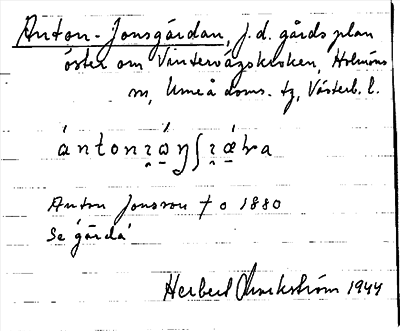 Anton-Jonsgårdan, f.d. gårdsplan
öster om Vintervägskroken, Holmöns
sn, Umeå doms. tg, Västerb. l.
Anton Jonsson † o 1880
Se gårda
Herbert Markström 1944